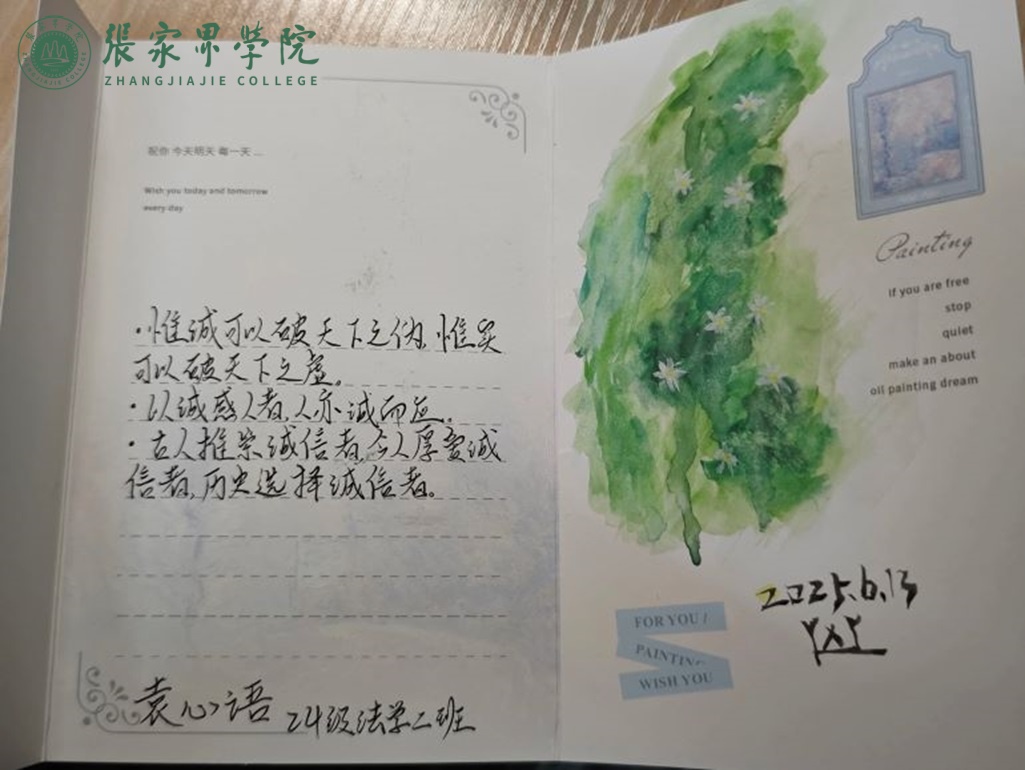 張家界学院
ZHANGJIAJIE COLLEGE
祝你 今天明天 每一天 ...
Wish you today and tomorrow
every day
·惟诚可以破天下之伪,惟实
可以破天下之虚。
·以诚感人者,人亦诚而应。
·古人推崇诚信者,今人厚爱诚
信者,历史选择诚信者。
袁心语 24级法学二班
Painting
if you are free
stop
quiet
make an about
oil painting dream
2025.6.13
YXY
FOR YOU /
PAINTING
WISH YOU